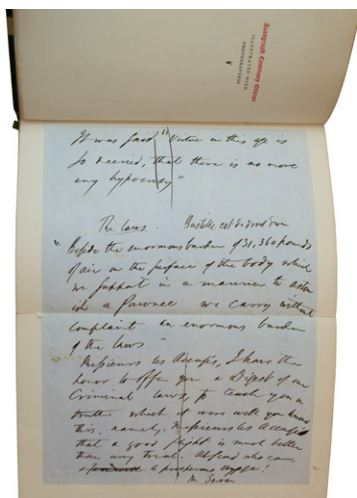 Autograph Centenary Edition
ILLUSTRATED WITH
PHOTOGRAVURES
It was said "Virtue in this age is
so decried, that there is no more
any hypocrisy"
The laws.
"Beside the enormous burden of 31,360 pounds
of air on the surface of the body which
we support in a manner to aston
ish a Pawnee we carry without
complaint an enormous burden
of the laws."
Messieurs les Accusés, I have the
honor to offer you a Digest of our
Criminal laws, to teach you a
truth which it were well you knew
this, namely, Messieurs les Accusés
that a good flight is much better
than any trial. Abscond who can,
a prosperous voyage!
M. Servan